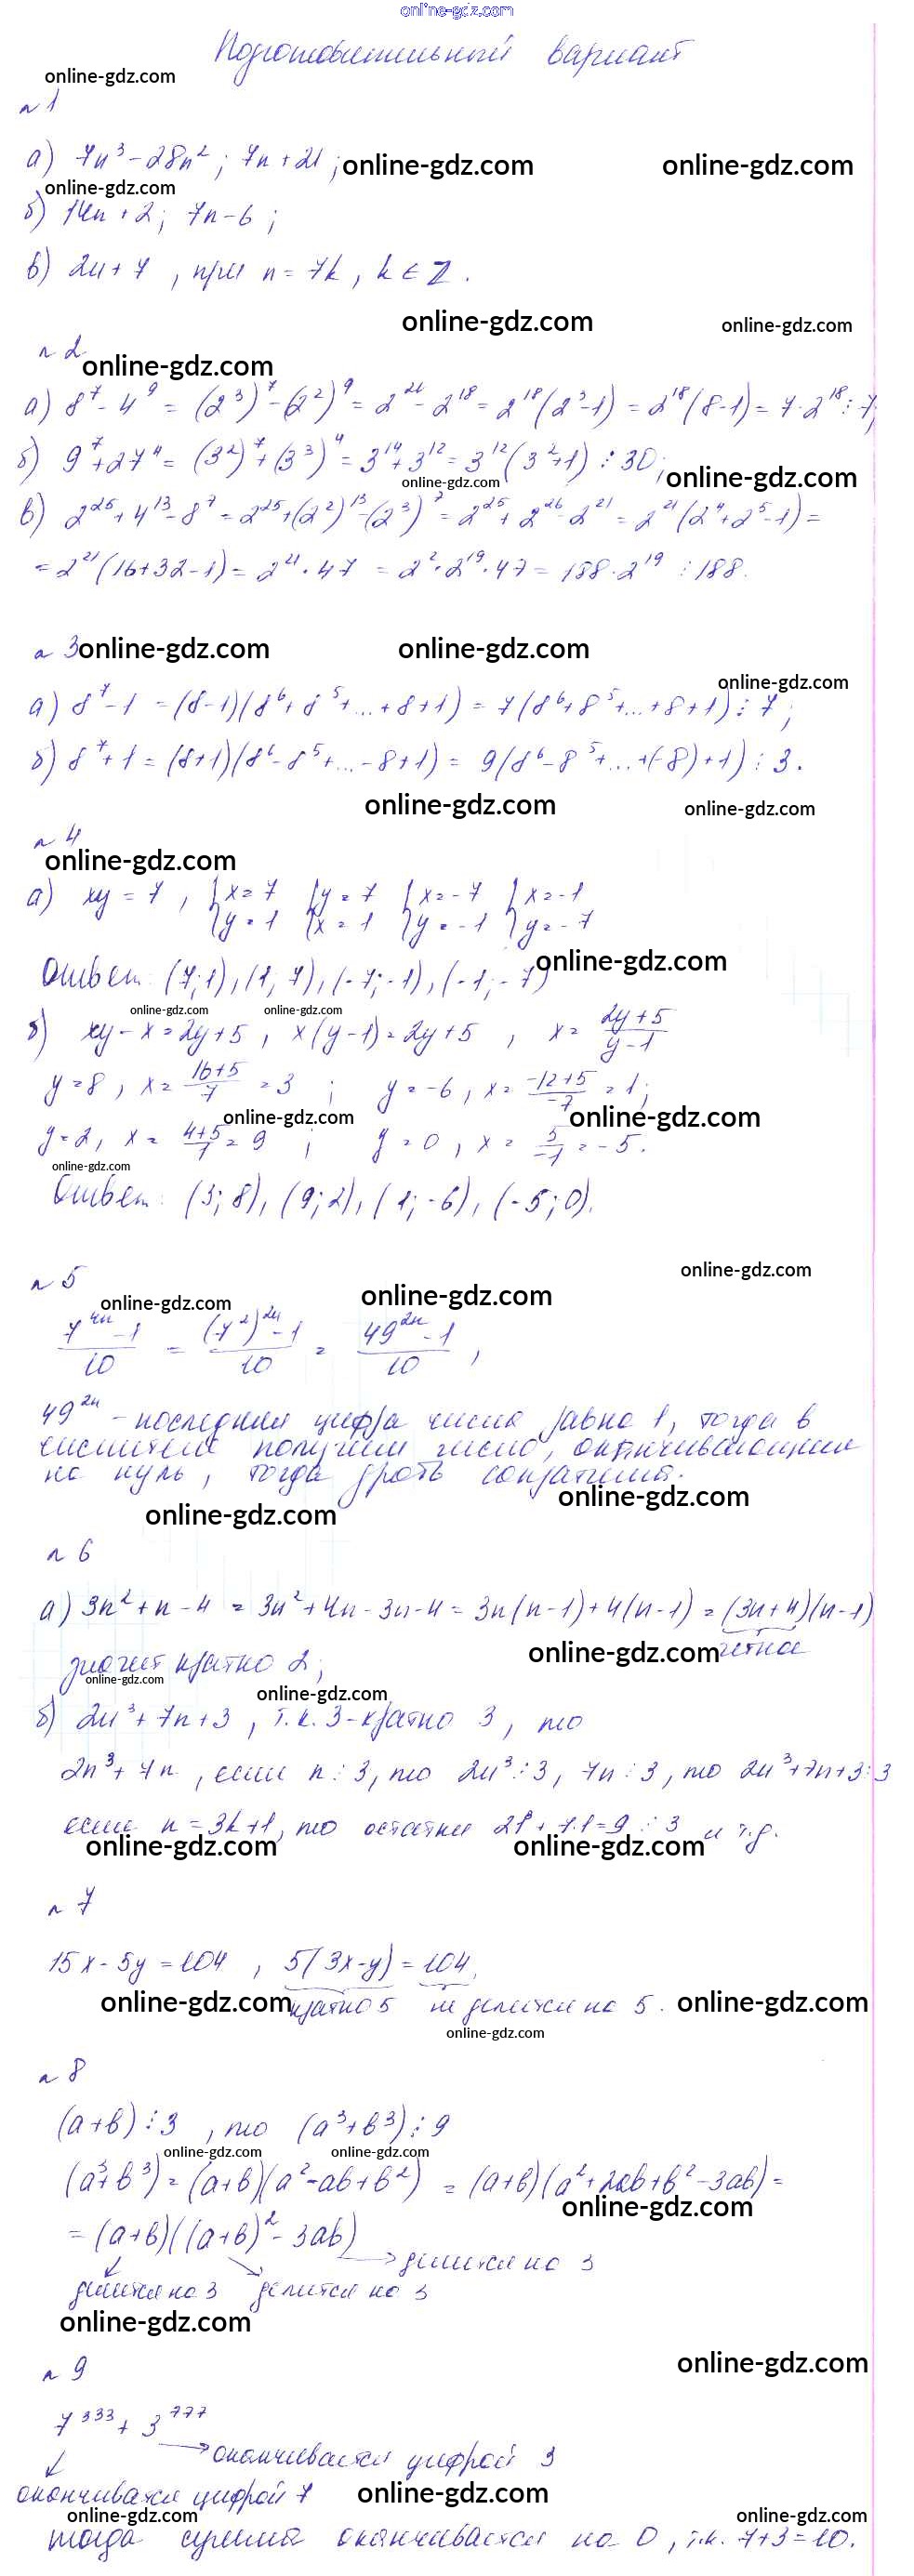 online-gdz.com
Подготовительный вариант
online-gdz.com
n 1
а) 7n³ - 28n² ; 7n + 21 ; online-gdz.com online-gdz.com
online-gdz.com
б) 14n + 2 ; 7n - 6 ;
в) 2n + 7 , при n = 7k , k ∈ Z .
online-gdz.com online-gdz.com
n 2
online-gdz.com
а) 8⁷ - 4⁹ = (2³)⁷ - (2²)⁹ = 2²¹ - 2¹⁸ = 2¹⁸(2³-1) = 2¹⁸(8-1) = 7·2¹⁸ ⋮ 7;
б) 9⁷ + 27⁴ = (3²)⁷ + (3³)⁴ = 3¹⁴ + 3¹² = 3¹²(3²+1) ⋮ 30; online-gdz.com
online-gdz.com
в) 2²⁵ + 4¹³ - 8⁷ = 2²⁵ + (2²)¹³ - (2³)⁷ = 2²⁵ + 2²⁶ - 2²¹ = 2²¹(2⁴ + 2⁵ - 1) =
= 2²¹(16+32-1) = 2²¹ · 47 = 2² · 2¹⁹ · 47 = 188 · 2¹⁹ ⋮ 188.
n 3 online-gdz.com online-gdz.com
online-gdz.com
а) 8⁷ - 1 = (8-1)(8⁶ + 8⁵ + ... + 8 + 1) = 7(8⁶ + 8⁵ + ... + 8 + 1) ⋮ 7 ;
б) 8⁷ + 1 = (8+1)(8⁶ - 8⁵ + ... - 8 + 1) = 9(8⁶ - 8⁵ + ... + (-8) + 1) ⋮ 3 .
online-gdz.com online-gdz.com
n 4
online-gdz.com
а) xy = 7 , { x = 7 { y = 7 { x = -7 { x = -1
y = 1 x = 1 y = -1 y = -7
Ответ: (7; 1), (1; 7), (-7; -1), (-1; -7) online-gdz.com
online-gdz.com online-gdz.com
б) xy - x = 2y + 5 , x(y-1) = 2y + 5 , x = (2y+5)/(y-1)
y = 8 , x = (16+5)/7 = 3 ; y = -6 , x = (-12+5)/-7 = 1 ;
online-gdz.com online-gdz.com
y = 2, x = (4+5)/1 = 9 ; y = 0 , x = 5/-1 = -5 .
online-gdz.com
Ответ: (3; 8), (9; 2), (1; -6), (-5; 0).
online-gdz.com
n 5
online-gdz.com online-gdz.com
(7⁴ⁿ - 1)/10 = ((7²)²ⁿ - 1)/10 = (49²ⁿ - 1)/10 ,
49²ⁿ - последняя цифра числа равна 1, тогда в
числителе получим число, оканчивающееся
на нуль, тогда дробь сократима.
online-gdz.com
online-gdz.com
n 6
а) 3n² + n - 4 = 3n² + 4n - 3n - 4 = 3n(n-1) + 4(n-1) = (3n+4)(n-1)
online-gdz.com четное
значит кратно 2 ;
online-gdz.com
online-gdz.com
б) 2n³ + 7n + 3 , т.к. 3 - кратно 3 , то
2n³ + 7n , если n ⋮ 3, то 2n³ ⋮ 3 , 7n ⋮ 3 , то 2n³+7n+3 ⋮ 3
если n = 3k+1, то остатки 2·1³ + 7·1 = 9 ⋮ 3 и т.д.
online-gdz.com online-gdz.com
n 7
15x - 5y = 104 , 5(3x-y) = 104,
online-gdz.com кратно 5 не делится на 5 . online-gdz.com
online-gdz.com
n 8
(a+b) ⋮ 3 , то (a³+b³) ⋮ 9
online-gdz.com online-gdz.com
(a³+b³) = (a+b)(a² - ab + b²) = (a+b)(a² + 2ab + b² - 3ab) =
online-gdz.com
= (a+b)((a+b)² - 3ab)
делится на 3
делится на 3 делится на 3
online-gdz.com
online-gdz.com
n 9
7³³³ + 3⁷⁷⁷
оканчивается цифрой 3
оканчивается цифрой 7 online-gdz.com
online-gdz.com online-gdz.com
тогда сумма оканчивается на 0 , т.к. 7+3=10.